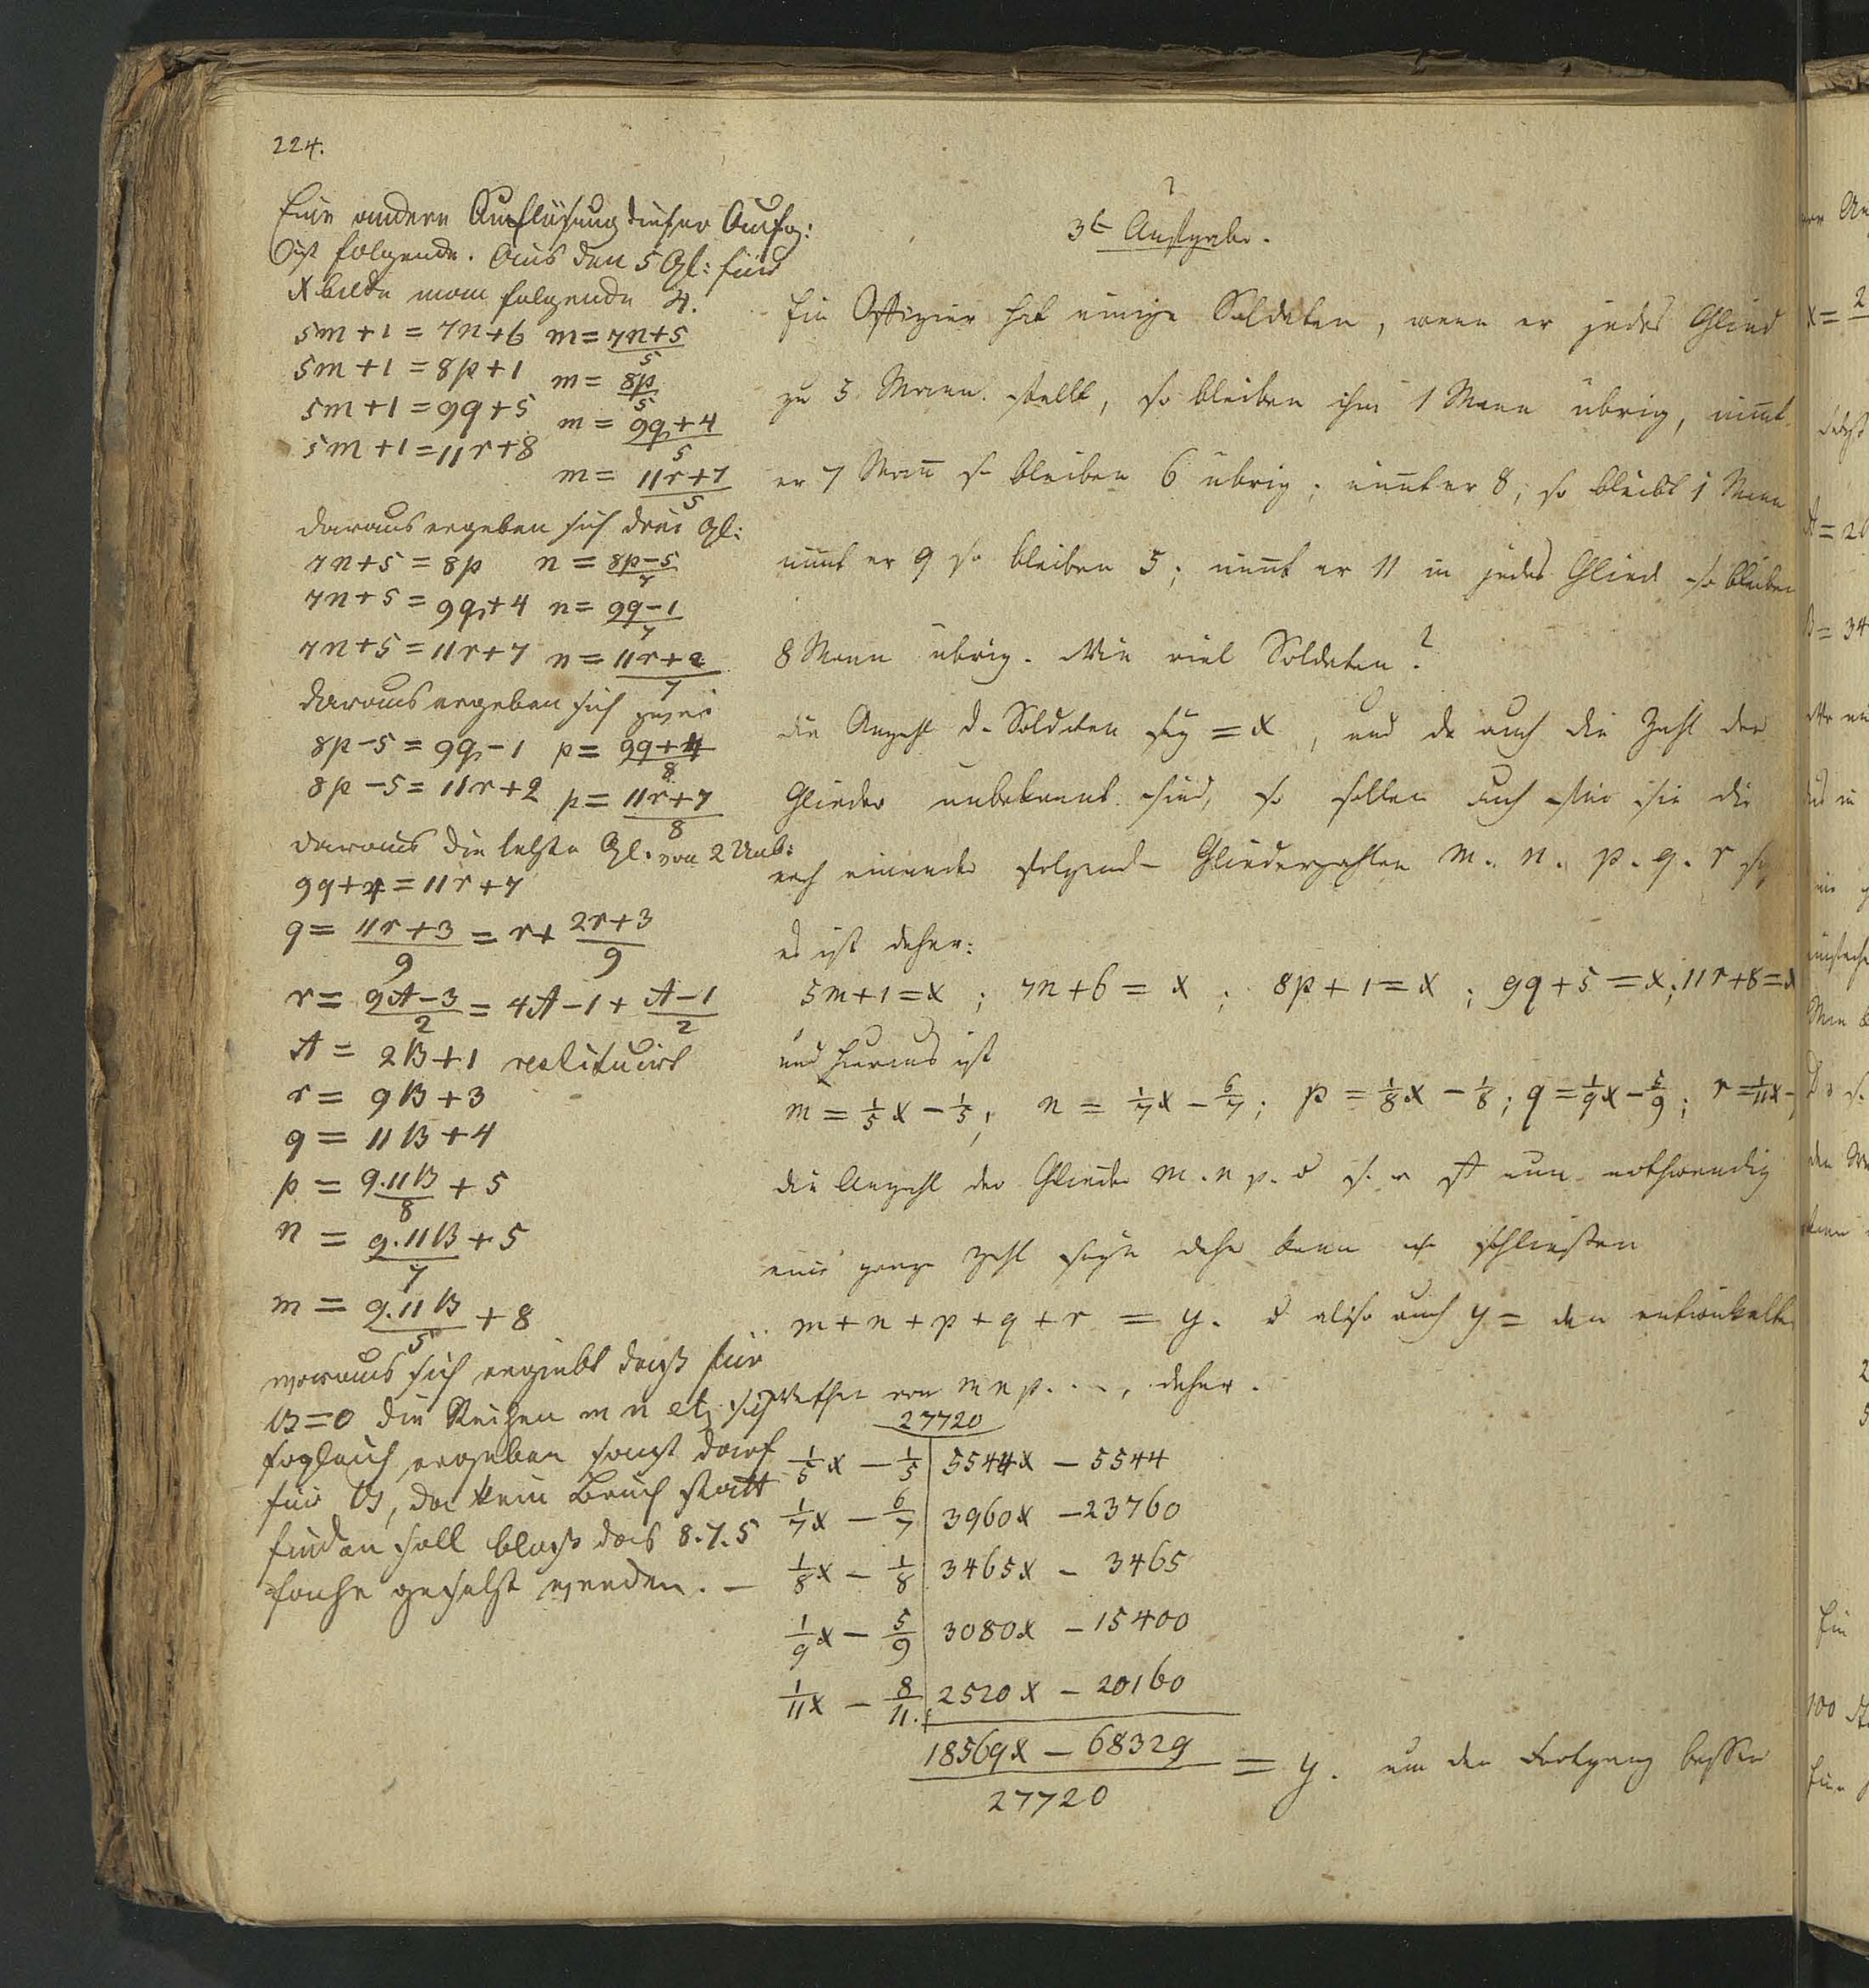 224.
Eine andere Auflösung dieser Aufg:
ist folgende. Aus den 5 Gl: für
x bilde man folgende 4.
5m+1 = 7n+6 m = 7n+5/5
5m+1 = 8p+1 m = 8p/5
5m+1 = 9q+5 m = 9q+4/5
5m+1 = 11r+8
m = 11r+7/5
daraus ergeben sich drei Gl:
7n+5 = 8p n = 8p-5/7
7n+5 = 9q+4 n = 9q-1/7
7n+5 = 11r+7 n = 11r+2/7
daraus ergeben sich zwei
8p-5 = 9q-1 p = 9q+4/8
8p-5 = 11r+2 p = 11r+7/8
daraus die letzte Gl. von 2 Unb:
9q+4 = 11r+7
q = 11r+3/9 = r + 2r+3/9
r = 9A-3/2 = 4A-1 + A-1/2
A = 2B+1 restituirt
r = 9B+3
q = 11B+4
p = 9.11B/8 + 5
n = 9.11B/7 + 5
m = 9.11B/5 + 8
woraus sich ergiebt daß für
B=0 die Reihen m n etz sich
sogleich ergeben sonst darf
für B, da kein Bruch statt
finden soll bloß das 8.7.5
fache gesetzt werden. –
3te Aufgabe.
Ein Offizier hat einige Soldaten, wenn er jedes Glied
zu 5 Mann stellt, so bleiben ihm 1 Mann übrig, nim̄t
er 7 Man̄ so bleiben 6 übrig; nim̄t er 8, so bleibt 1 Mann
nim̄t er 9 so bleiben 5; nim̄t er 11 in jedes Glied so bleiben
8 Mann übrig. Wie viel Soldaten?
die Anzahl d. Soldaten sey = x, und da auch die Zahl der
Glieder unbekannt sind, so sollen auch die
nach einander folgend Gliederzahlen m. n. p. q. r sey
es ist daher:
5m+1 = x; 7n+6 = x; 8p+1 = x; 9q+5 = x; 11r+8 = x
und hieraus ist
m = 1/5x - 1/5; n = 1/7x - 6/7; p = 1/8x - 1/8; q = 1/9x - 5/9; r = 1/11x -
die Anzahl der Glieder m. n p. nun nothwendig
eine ganze Zahl seyn daher kann schließen
m + n + p + q + r = y. also auch y = den entwickelten
Werthen von m n p. . ., daher.
27720
1/5x - 1/5 | 5544x - 5544
1/7x - 6/7 | 3960x - 23760
1/8x - 1/8 | 3465x - 3465
1/9x - 5/9 | 3080x - 15400
1/11x - 8/11. | 2520x - 20160
18569x - 68329/27720 = y. um den Fortgang besser